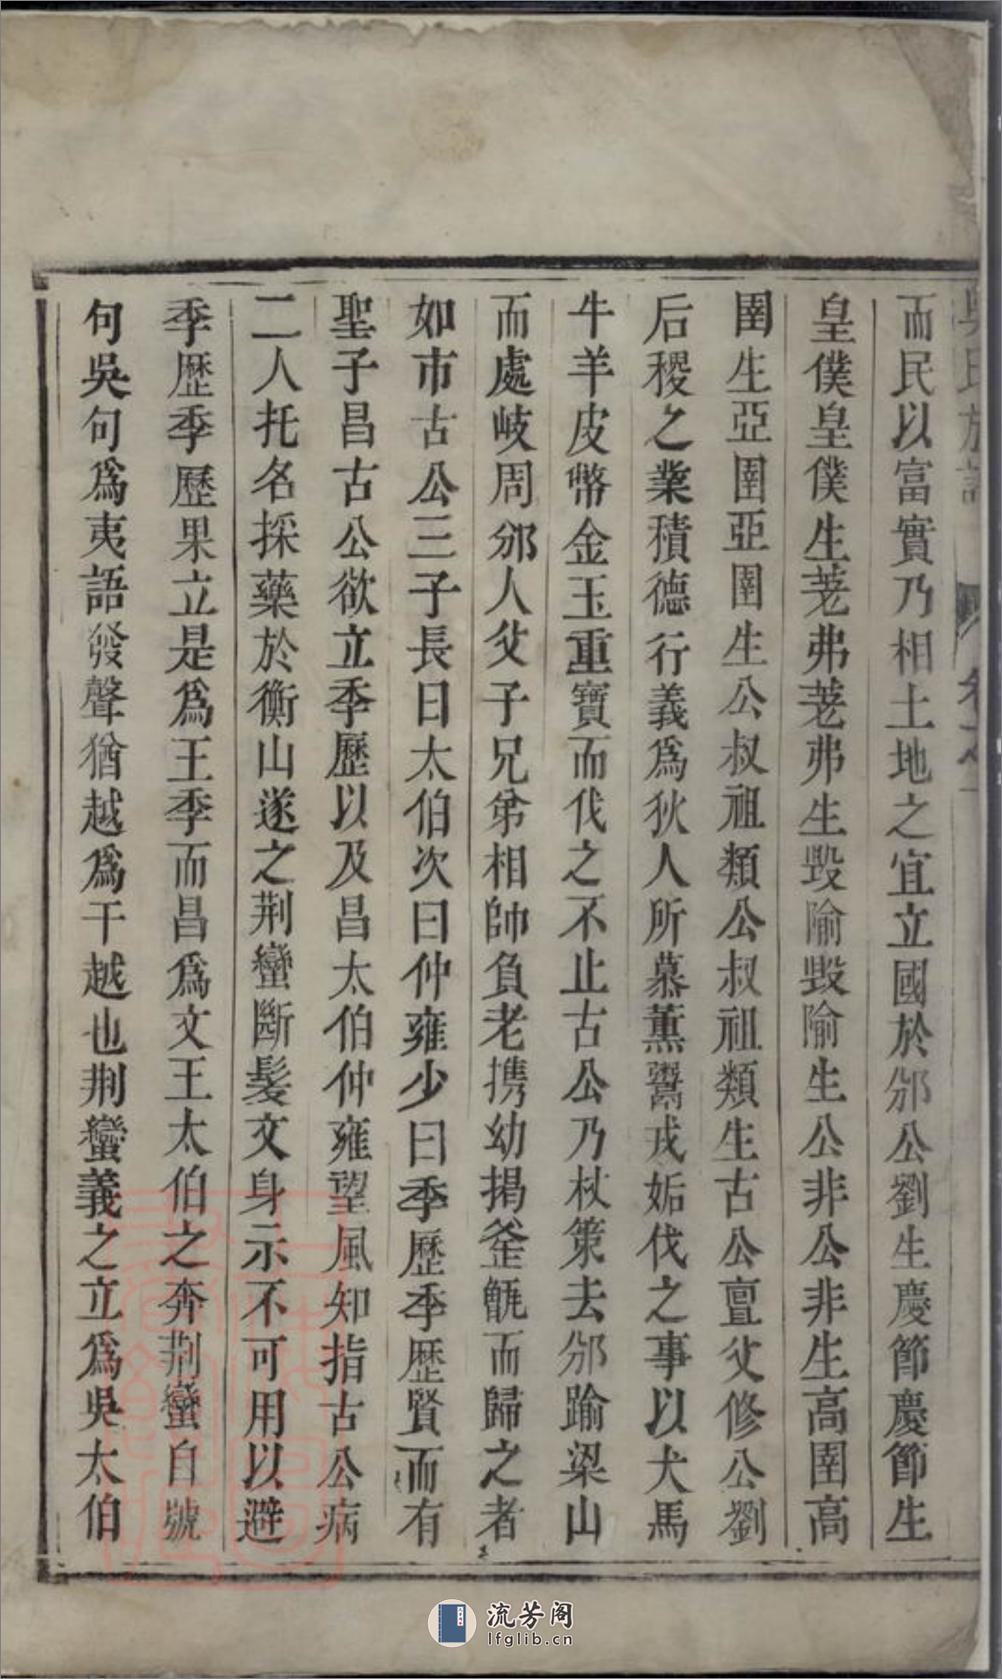 吳氏族譜 卷之一
而民以富實乃相土地之宜立國於邠公劉生慶節慶節生
皇僕皇僕生荖弗荖弗生毀隃毀隃生公非公非生高圉高
圉生亞圉亞圉生公叔祖類公叔祖類生古公亶父修公劉
后稷之業積德行義為狄人所慕薰鬻戎姤伐之事以犬馬
牛羊皮幣金玉重寶而伐之不止古公乃杖策去邠踰梁山
而處岐周邠人父子兄弟相帥負老携幼揭釜甑而歸之者
如市古公三子長曰太伯次曰仲雍少曰季歷季歷賢而有
聖子昌古公欲立季歷以及昌太伯仲雍望風知指古公病
二人托名採藥於衡山遂之荆蠻斷髮文身示不可用以避
季歷季歷果立是為王季而昌為文王太伯之奔荆蠻自號
句吳句為夷語發聲猶越為干越也荆蠻義之立為吳太伯
流芳阁
lfglib.cn